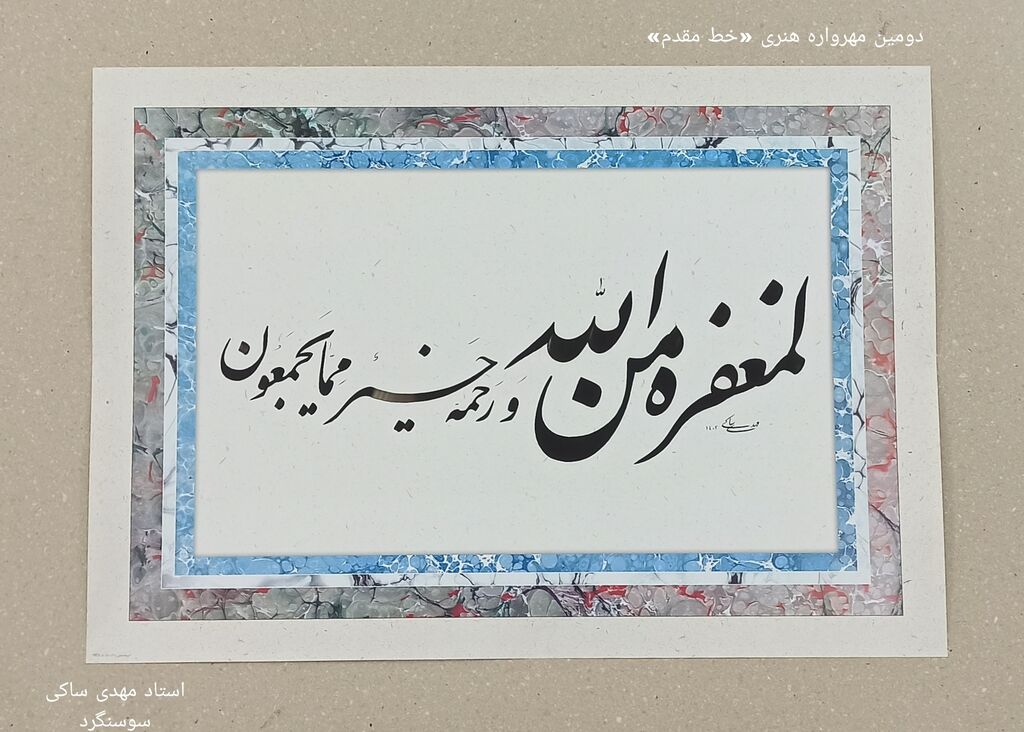 دومین مهرواره هنری «خط مقدم»
لمغفره من الله وَ رَحمَه خَیرٌ مِمّا یَجمَعَوُن
۱۴۰۲
استاد مهدی ساکی
سوسنگرد